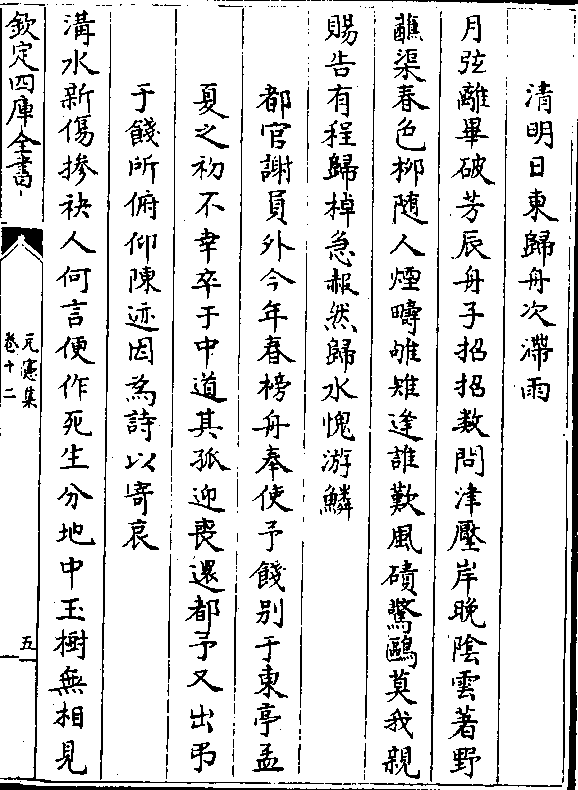 清明日東歸舟次滯雨
月弦離畢破芳辰舟子招招数問津壓岸晚陰雲著野
蘸渠春色栁随人煙疇雊雉逢誰歎風磧驚鷗莫我親
賜告有程歸棹急赧然歸水愧游鱗
都官謝員外今年春榜舟奉使予餞别于東亭孟
夏之初不幸卒于中道其孤迎喪還都予又出弔
于餞所俯仰陳迹因為詩以寄哀
溝水新傷摻袂人何言便作死生分地中玉樹無相見
欽定四庫全書
元憲集
卷十二
五